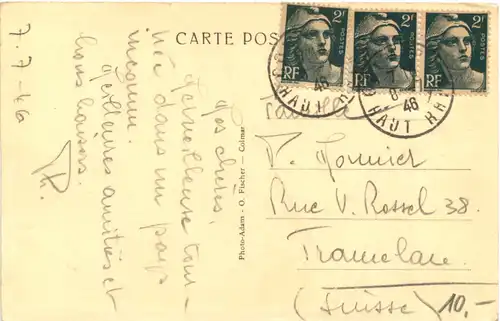 CARTE POS
2F
POSTES
RF
2F
POSTES
RF
2F
POSTES
RF
46
HAUT RH
8-
46
HAUT RH
7.7.46
Mes chères,
Merveilleuse tour-
née dans un pays
inconnu.
Meilleures amitiés et
bons baisers.
Photo-Adam - O. Fischer - Colmar
Famille
P. Monnier
Rue V. Rossel 38.
Tramelan.
(Suisse)
10.-